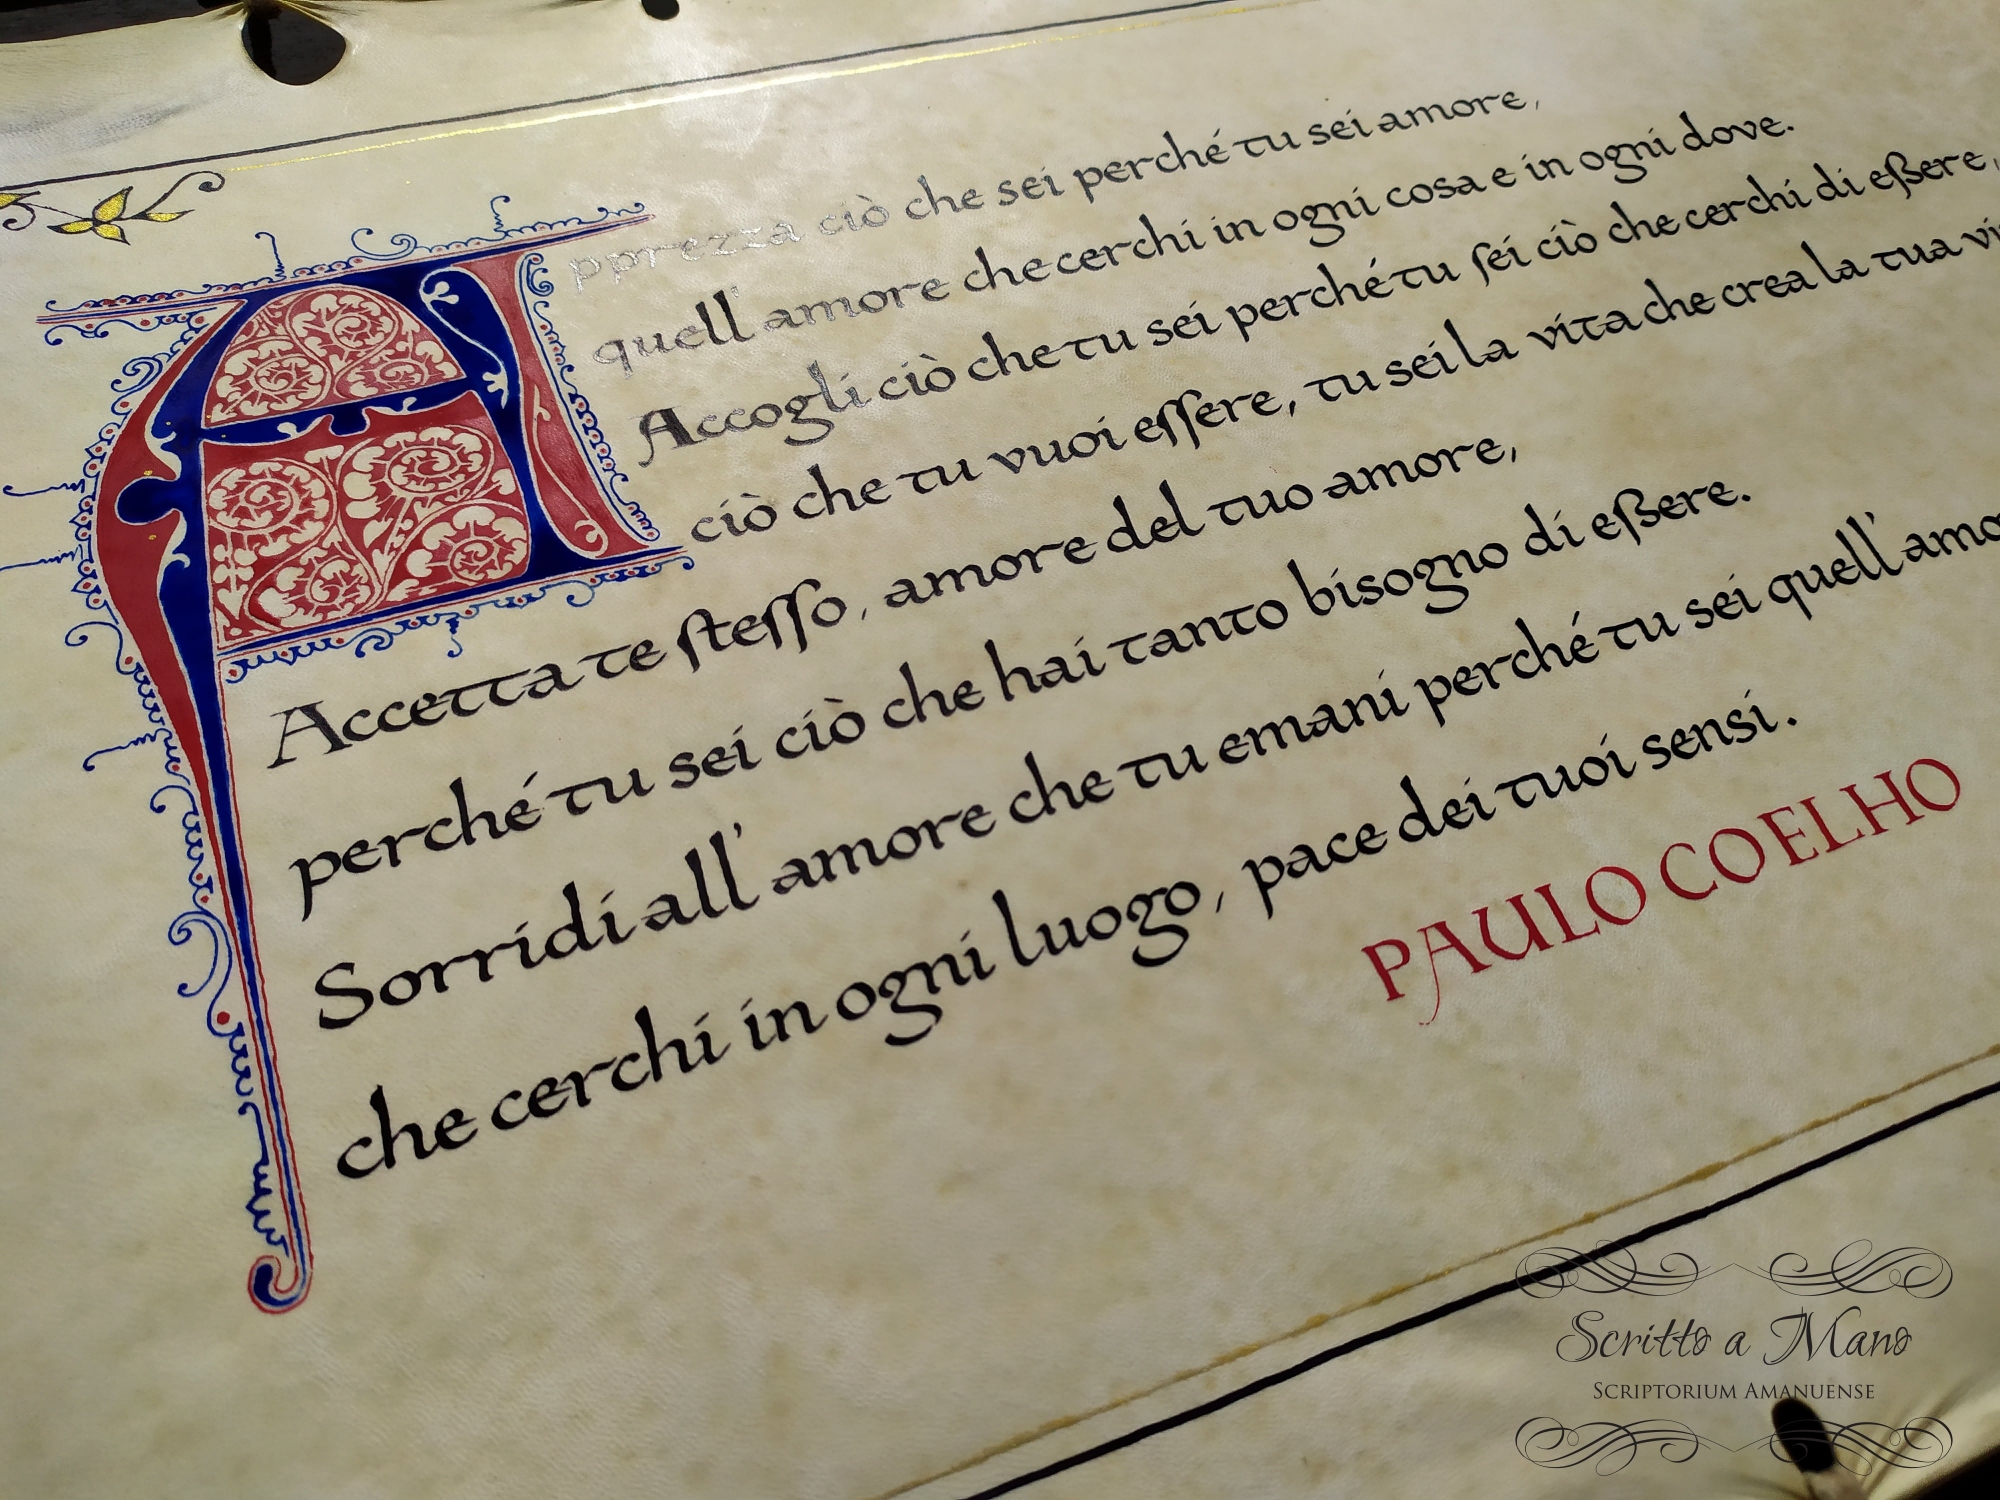 Apprezza ciò che sei perché tu sei amore,
quell'amore che cerchi in ogni cosa e in ogni dove.
Accogli ciò che tu sei perché tu ſei ciò che cerchi di eßere,
ciò che tu vuoi eſſere, tu sei la vita che crea la tua
Accetta te ſteſſo, amore del tuo amore,
perché tu sei ciò che hai tanto bisogno di eßere.
Sorridi all'amore che tu emani perché tu sei quell'amo
che cerchi in ogni luogo, pace dei tuoi sensi.
PAULO COELHO
Scritto a Mano
SCRIPTORIUM AMANUENSE